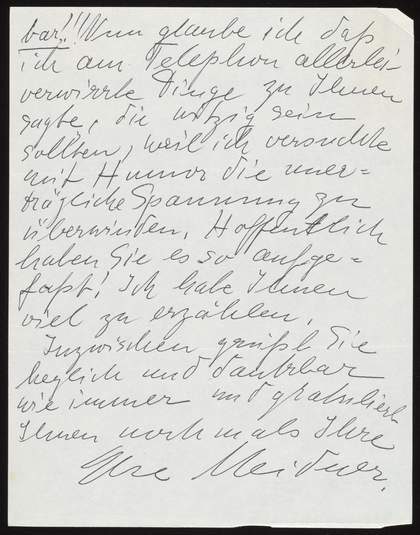 bar!! Nun glaube ich daß
ich am Telephon allerlei
verwirrte Dinge zu Ihnen
sagte, die witzig sein
sollten, weil ich versuchte
mit Humor die uner=
trägliche Spannung zu
überwinden. Hoffentlich
haben Sie es so aufge=
faßt! Ich habe Ihnen
viel zu erzählen.
Inzwischen grüßt Sie
herzlich und dankbar
wie immer und gratuliert
Ihnen nochmals Ihre
Else Meidner.